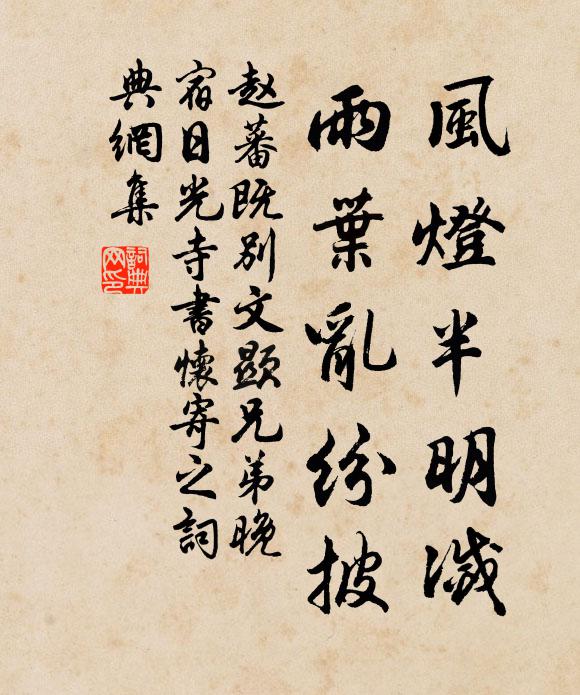 風燈半明滅
雨葉亂紛披
赵蕃既别文顕兄弟晚
宿日光寺書懷寄之詞
典網集
詞典
网印